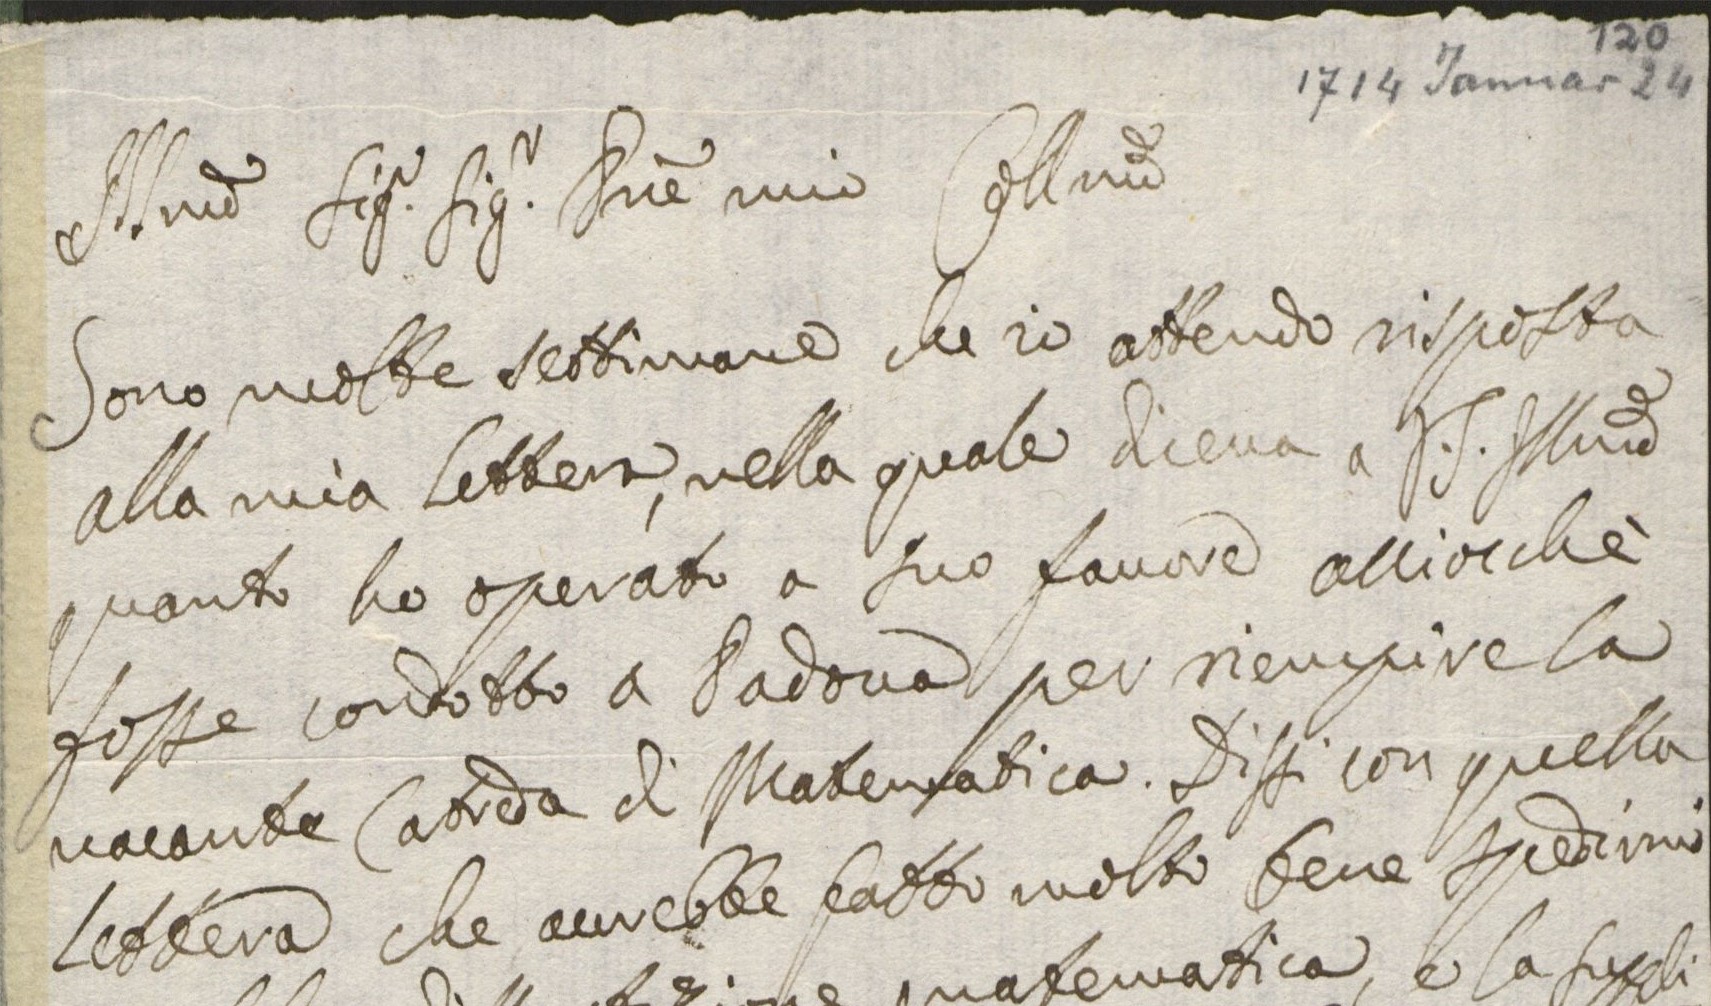 120
1714 Januar 24
Illmo Sigr. Sigr. Prñe mio Collmo
Sono molte settimane che io attendo risposta
alla mia lettera, nella quale diceva a V.S. Illma
quanto ho operato a suo favore acciocchè
fosse condotto a Padova per riempire la
vacante Catreda di Matematica. Dissi con quella
lettera che aurebbe fatto molto bene spedirmi
matematica, e la